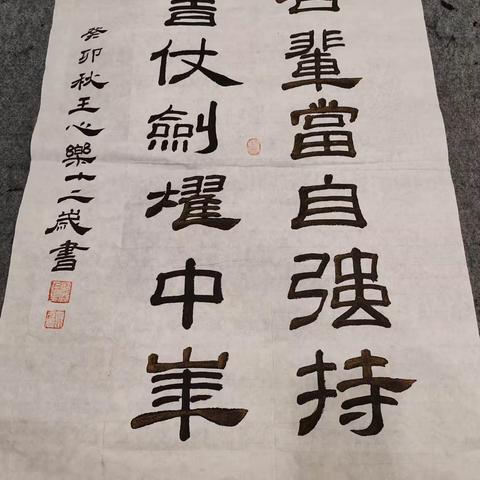 吾輩當自强持
書仗劍耀中華
癸卯秋王心樂十二歲書